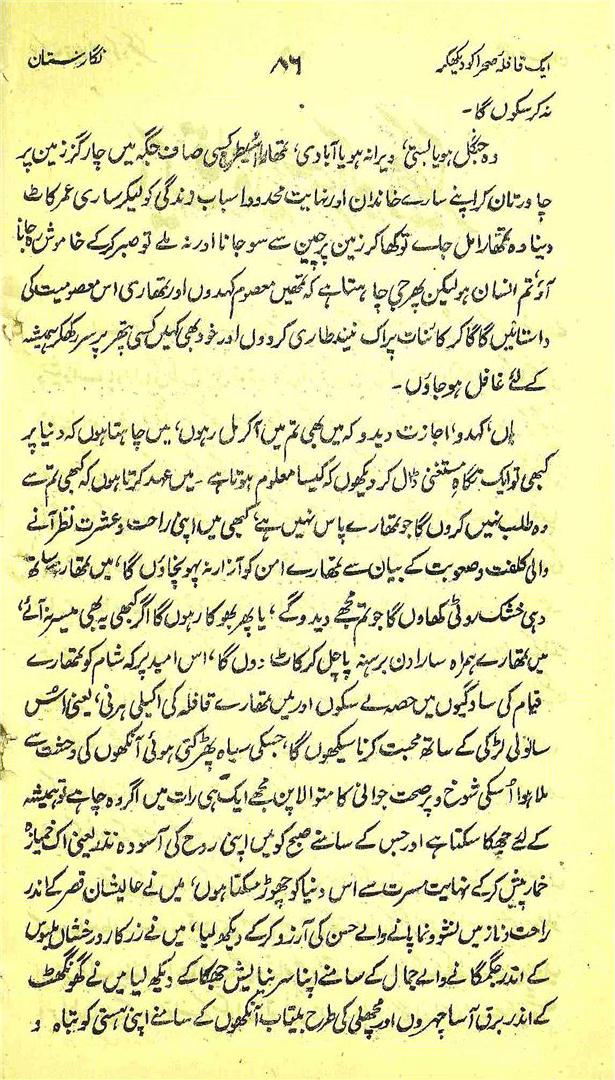 ایک قافلۂ صحرا کو دیکھکر ۸۶ نگارستان
نہ کرسکوں گا۔
وہ جنگل ہو یا بستی، ویرانہ ہو یا آبادی، تمھارا اسیطرح کسی صاف جگہ میں چار گز زمین پر
چادر تان کر اپنے سارے خاندان اور نہایت محدود اسباب زندگی کو لیکر ساری عمر کاٹ
دینا وہ تمھارا مل جاے تو کھا کر زمین پر چین سے سو جانا اور نہ ملے تو صبر کر کے خاموش رہ جانا
آہ، تم انسان ہو لیکن پھر جی چاہتا ہے کہ تمھیں معصوم کہدوں اور تمھاری اس معصومیت کی
داستانیں گا گا کر کائنات پر اک نیند طاری کردوں اور خود بھی کہیں کسی پتھر پر سر رکھکر ہمیشہ
کے لئے غافل ہو جاؤں۔
ہاں، کہدو، اجازت دیدو کہ میں بھی تم میں آکر مل رہوں، میں چاہتا ہوں کہ دنیا پر
کبھی تو ایک نگاہِ مستغنی ڈال کر دیکھوں کہ کیسا معلوم ہوتا ہے۔ میں عہد کرتا ہوں کہ کبھی تم سے
وہ طلب نہیں کروں گا جو تمھارے پاس نہیں ہے، کبھی میں اپنی راحت و عشرت نظر آنے
والی کلفت و صعوبت کے بیان سے تمھارے امن کو آزار نہ پہونچاؤں گا، میں تمھارے ساتھ
وہی خشک روٹی کھاوں گا جو تم مجھے دیدوگے، یا پھر بھوکا رہوں گا اگر کبھی یہ بھی میسر نہ آئے،
میں تمھارے ہمراہ سارا دن برہنہ پا چل کر کاٹ دوں گا، اس امید پر کہ شام کو تمھارے
قیام کی سادگیوں میں حصہ لے سکوں اور میں تمھارے قافلہ کی اکیلی ہرنی، یعنی اُس
سانولی لڑکی کے ساتھ محبت کرنا سیکھوں گا، جسکی سیاہ پھڑکتی ہوئی آنکھوں کی وحشت سے
ملا ہوا اُسکی شوخ و پرصحت جوانی کا متوالا پن مجھے ایک ہی رات میں اگر وہ چاہے تو ہمیشہ
کے لئے تھکا سکتا ہے اور جس کے سامنے صبح کو میں اپنی روح کی آسودہ نذر یعنی اک خمیازہ
خمار پیش کر کے نہایت مسرت سے اس دنیا کو چھوڑ سکتا ہوں، میں نے عالیشان قصر کے اندر
راحت و ناز میں نشو و نما پانے والے حسن کی آرزو کر کے دیکھ لیا، میں نے زر کار و درخشاں ملبوس
کے اندر جگمگانے والے جمال کے سامنے اپنا سر نیایش جھکا کے دیکھ لیا میں نے گھونگھٹ
کے اندر برق آسا چہروں اور مچھلی کی طرح بیتاب آنکھوں کے سامنے اپنی ہستی کو تباہ و